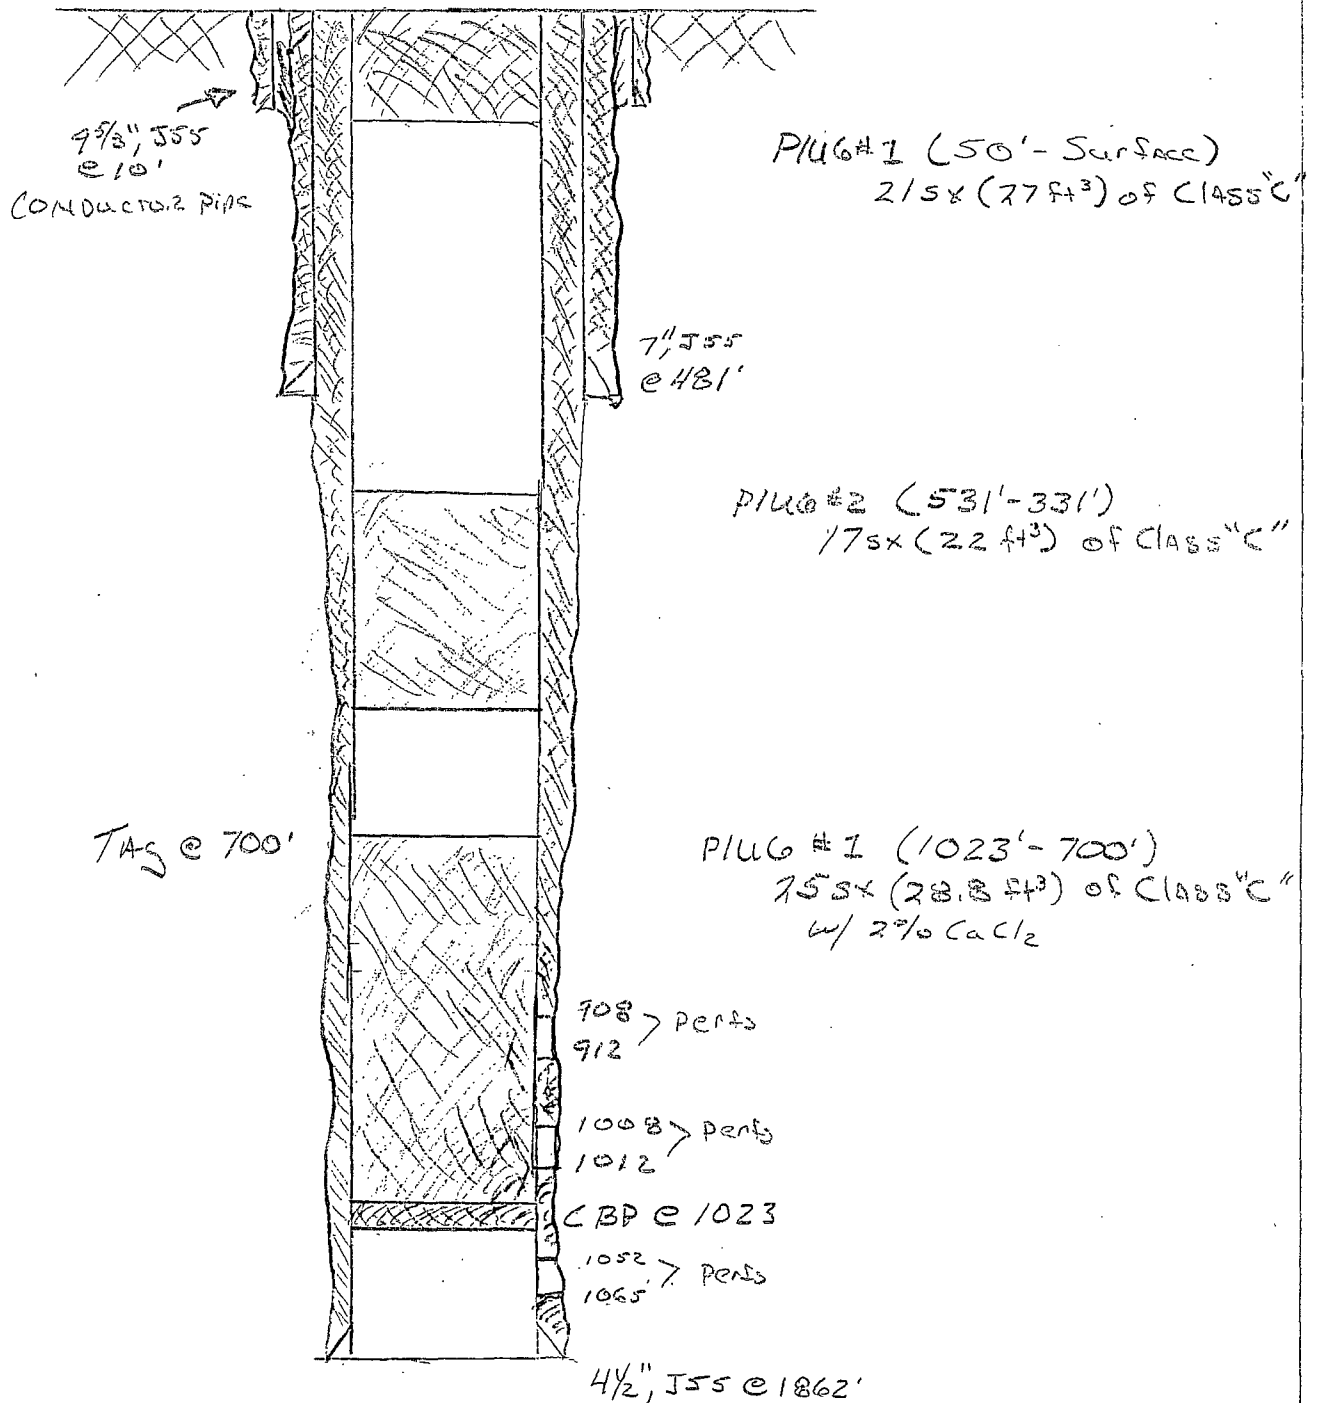 9 5/8", J55
@ 10'
CONDUCTOR PIPE
PlUG#1 (50'- Surface)
21sx (27 ft³) of ClASS"C"
7", J55
@ 481'
PlUG#2 (531'-331')
17sx (22 ft³) of ClASS"C"
TAg @ 700'
PlUG #1 (1023'-700')
25sx (28.8 ft³) of ClASS"C"
w/ 2% CaCl2
908
912 > perfs
1008
1012 > perfs
CBP @ 1023
1052
1065 > perfs
4½", J55 @ 1862'